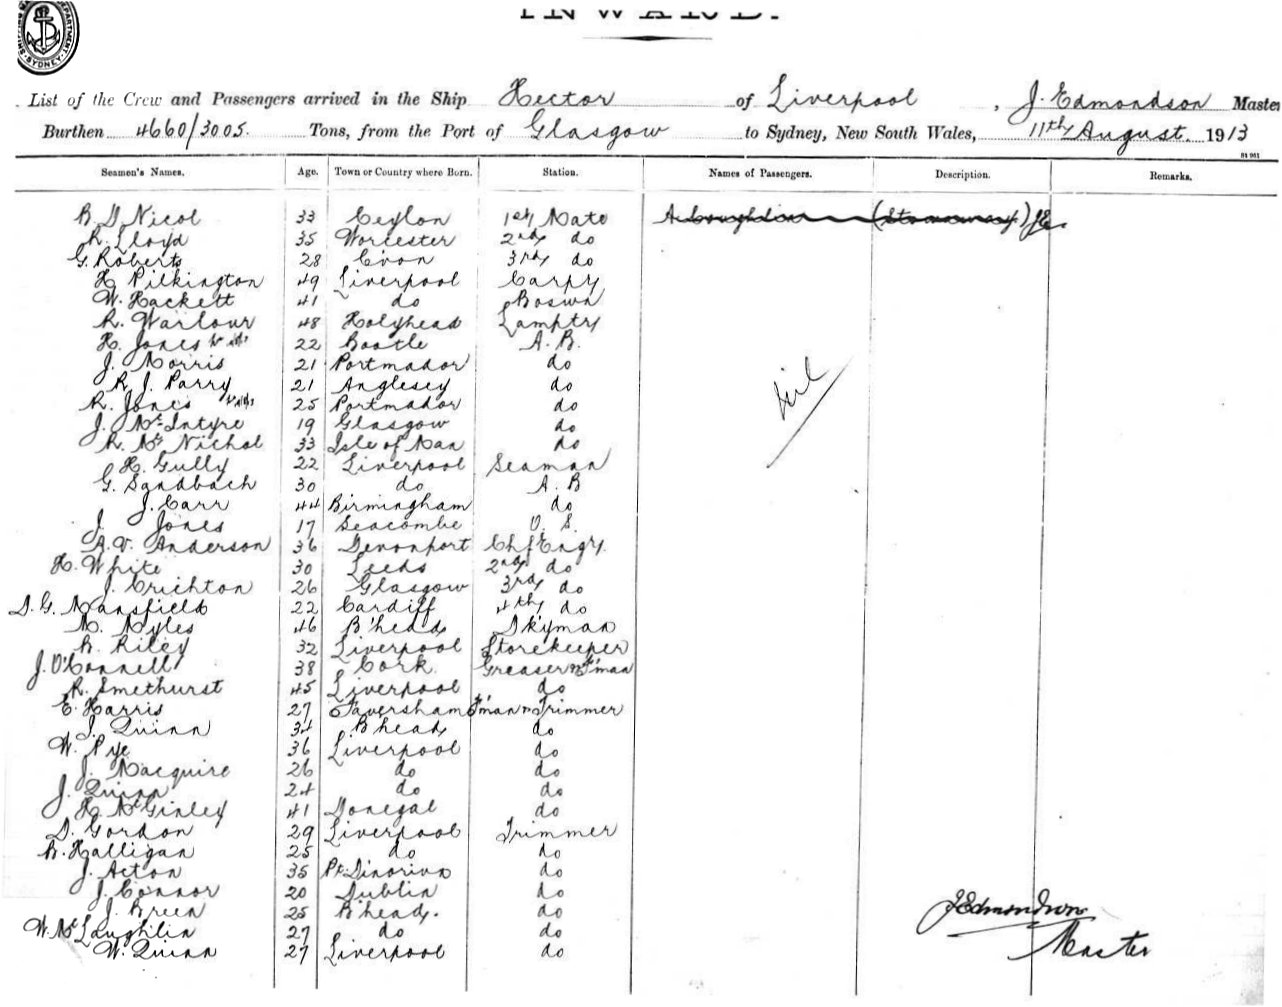 INWARD.
SYDNEY
List of the Crew and Passengers arrived in the Ship Hector of Liverpool, J. Edmondson Master
Burthen 4660/3005. Tons, from the Port of Glasgow to Sydney, New South Wales, 11th August. 1913
Seamen's Names. Age. Town or Country where Born. Station. Names of Passengers. Description. Remarks.
B. D. Nicol 33 Ceylon 1st Mate J.E.
R. Lloyd 35 Worcester 2nd do
G. Roberts 28 3rd do
H. Pilkington 49 Liverpool Carpr
W. Hackett 41 do Boswn
R. Warlour 48 Holyhead Lamptr
H. Jones 22 Bootle A.B.
J. Morris 21 Portmador do
R. J. Parry 21 Anglesey do
R. Jones 25 Portmador do
nil
J. McIntyre 19 Glasgow do
R. McNichol 33 Isle of Man do
H. Gully 22 Liverpool Seaman
G. Sandbach 30 do A.B
J. Carr 44 Birmingham do
J. Jones 17 Seacombe O.S.
A.V. Anderson 36 Devonport Chf Engr.
H. White 30 Leeds 2nd do
J. Crichton 26 Glasgow 3rd do
D. G. Mansfield 22 Cardiff 4th do
M. Myles 46 B'head Dkyman
B. Riley 32 Liverpool Storekeeper
J. O'Connell 38 Cork. Greaser F'man
R. Smethurst 45 Liverpool do
E. Harris 27 Faversham F'man Trimmer
J. Quinn 34 B'head do
W. Pye 36 Liverpool do
J. Macquire 26 do do
J. Quinn 24 do do
H. McGinley 41 Donegal do
D. Gordon 29 Liverpool Trimmer
B. Halligan 25 do do
J. Acton 35 Pt. Dinorivn do
J. Connor 20 Dublin do
J. Breen 25 B'head. do J Edmondson
W. McLaughlin 27 do do Master
W. Quinn 27 Liverpool do